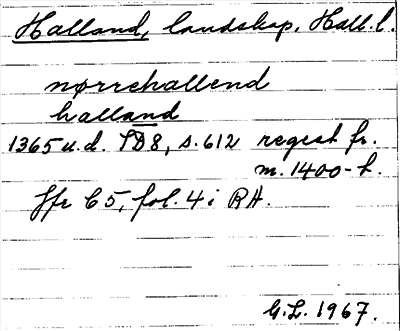 Halland, landskap. Hall. l.
nørrehallend
halland
1365 u.d. SD8, s. 612 regest fr.
m. 1400-t.
Jfr C5, fol. 4 i RA.
G.L. 1967.